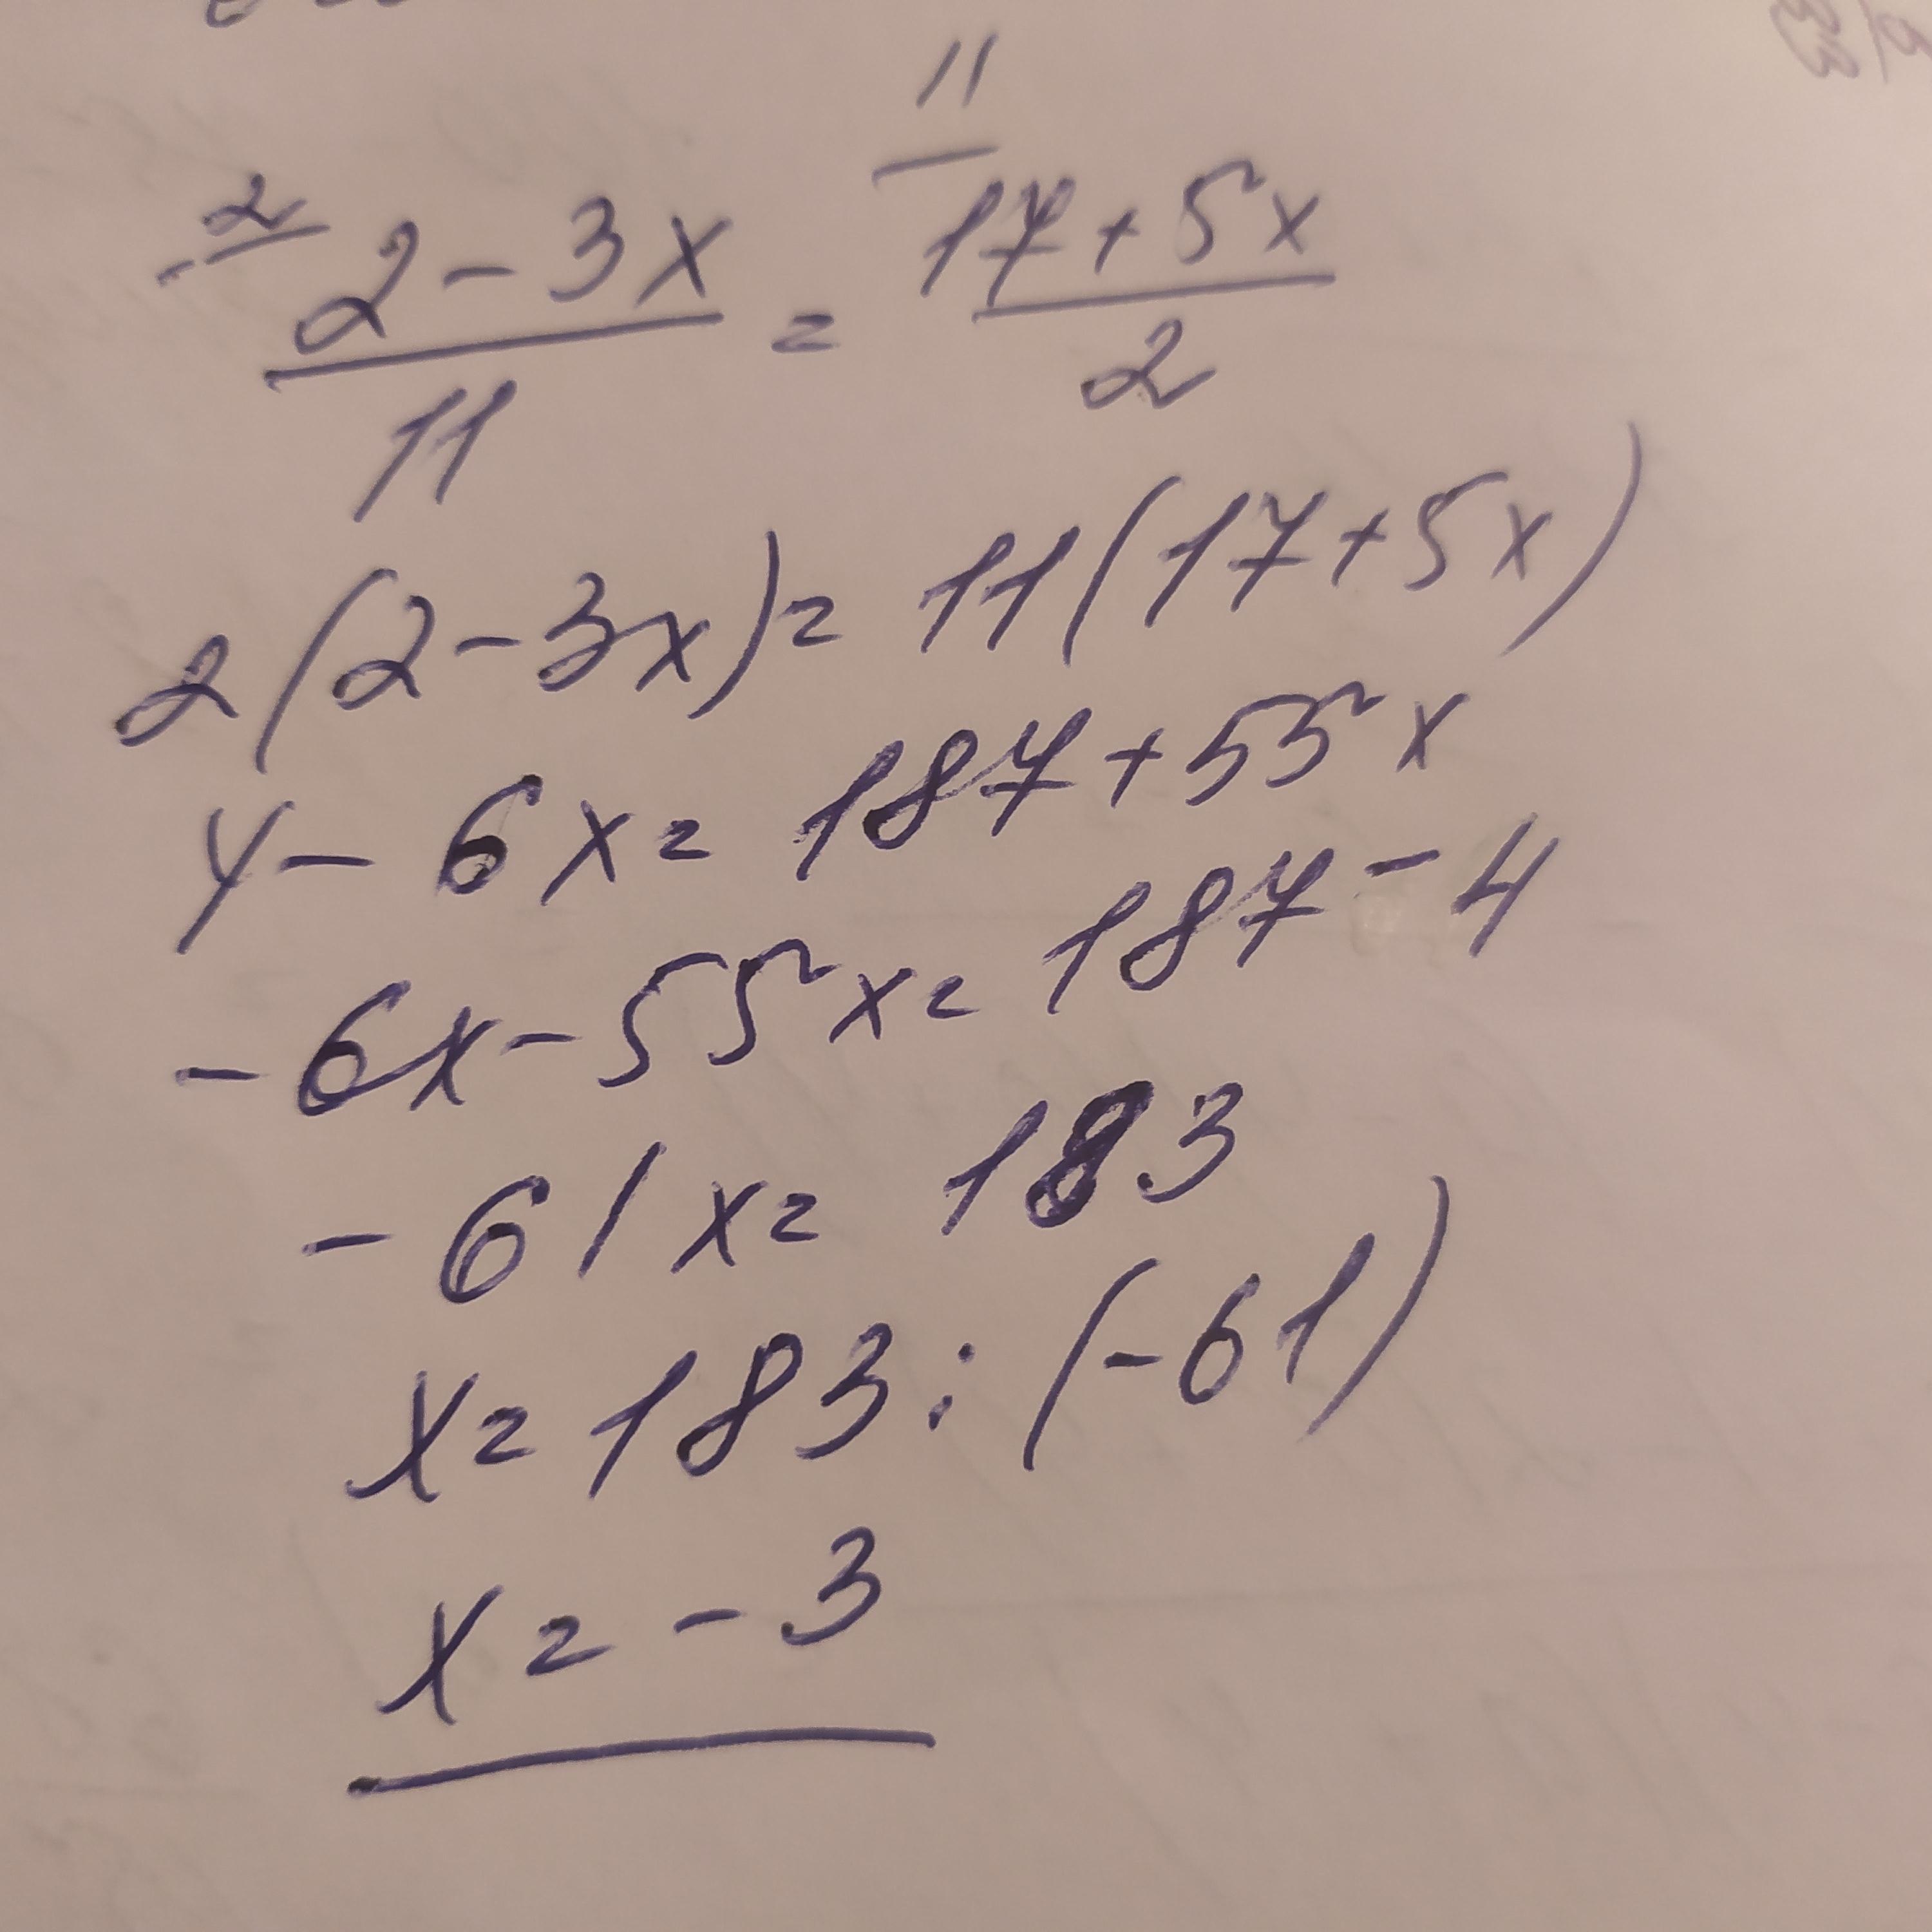 2 11
2-3x/11 = 17+5x/2
2(2-3x)=11(17+5x)
4-6x=187+55x
-6x-55x=187-4
-61x=183
x=183:(-61)
x=-3